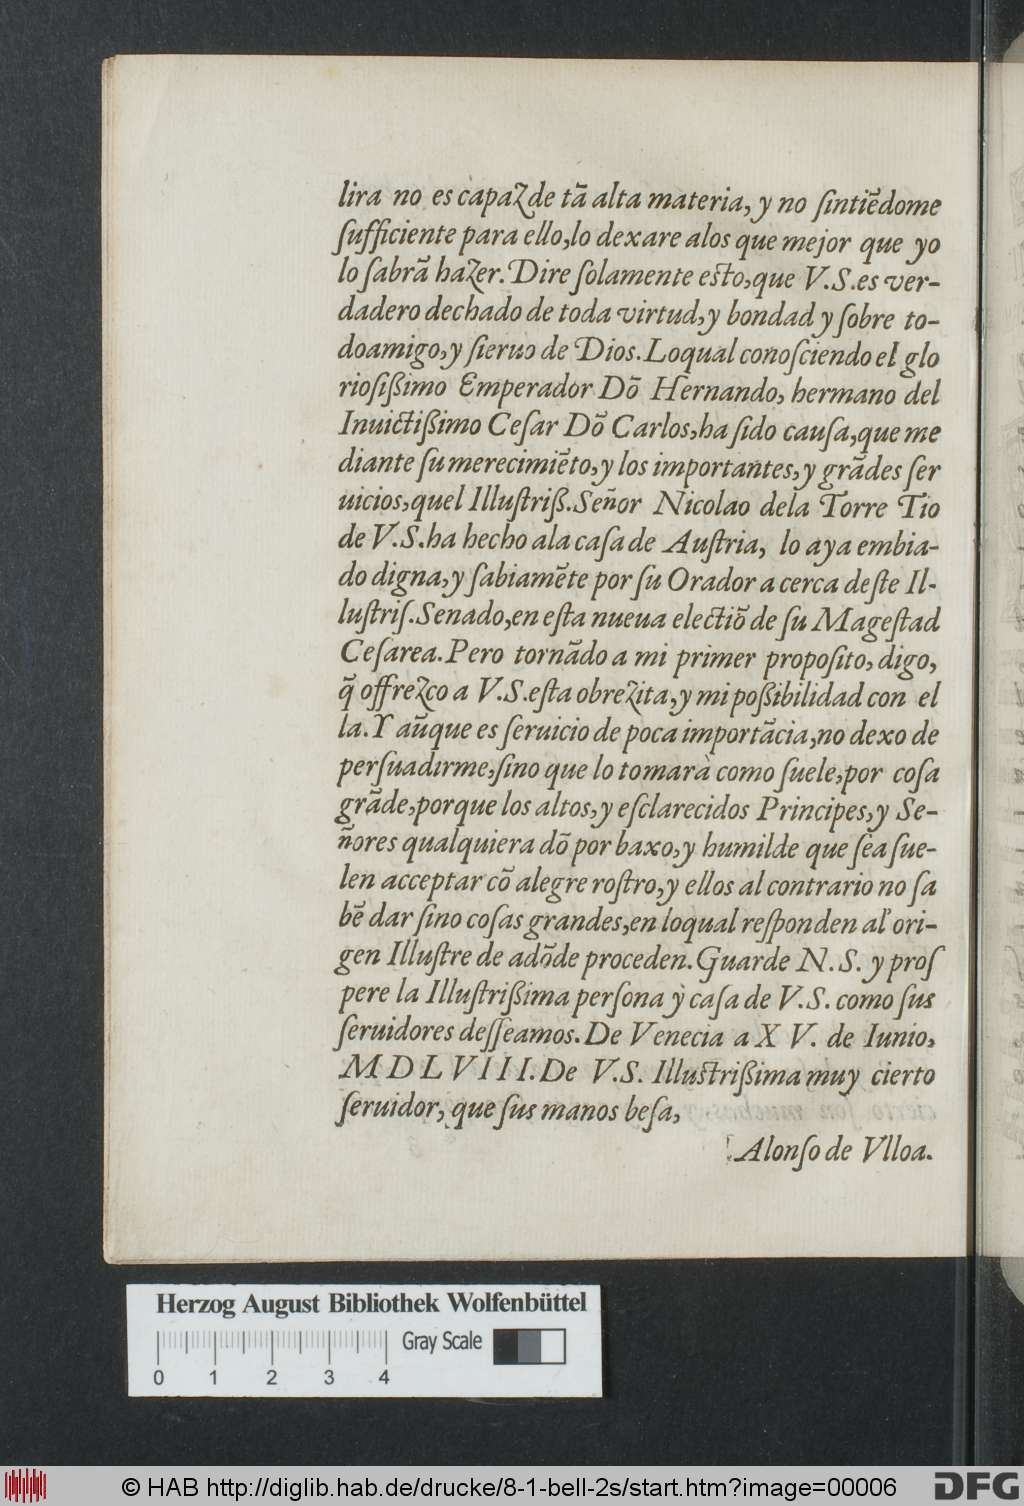 lira no es capaz de tã alta materia, y no ſintiẽdome
ſufficiente para ello, lo dexare alos que mejor que yo
lo ſabrã hazer. Dire ſolamente eſto, que V.S. es ver-
dadero dechado de toda virtud, y bondad y ſobre to-
doamigo, y ſieruo de Dios. Loqual conoſciendo el glo
rioſißimo Emperador Dõ Hernando, hermano del
Inuictißimo Ceſar Dõ Carlos, ha ſido cauſa, que me
diante ſu merecimiẽto, y los importantes, y grãdes ſer
uicios, quel Illuſtriß. Señor Nicolao dela Torre Tio
de V.S. ha hecho ala caſa de Auſtria, lo aya embia-
do digna, y ſabiamẽte por ſu Orador a cerca deſte Il-
luſtriſ. Senado, en eſta nueua electiõ de ſu Mageſtad
Ceſarea. Pero tornãdo a mi primer propoſito, digo,
q̃ offrezco a V.S. eſta obrezita, y mi poßibilidad con el
la. Y aũque es ſeruicio de poca importãcia, no dexo de
perſuadirme, ſino que lo tomarà como ſuele, por coſa
grãde, porque los altos, y eſclarecidos Principes, y Se-
ñores qualquiera dõ por baxo, y humilde que ſea ſue-
len acceptar cõ alegre roſtro, y ellos al contrario no ſa
bẽ dar ſino coſas grandes, en loqual reſponden al' ori-
gen Illuſtre de adõde proceden. Guarde N.S. y proſ
pere la Illuſtrißima perſona ỳ caſa de V.S. como ſus
ſeruidores deſſeamos. De Venecia a XV. de Iunio,
MDLVIII. De V.S. Illuſtrißima muy cierto
ſeruidor, que ſus manos beſa,
Alonſo de Vlloa.
Herzog August Bibliothek Wolfenbüttel
Gray Scale
0 1 2 3 4
© HAB http://diglib.hab.de/drucke/8-1-bell-2s/start.htm?image=00006
DFG